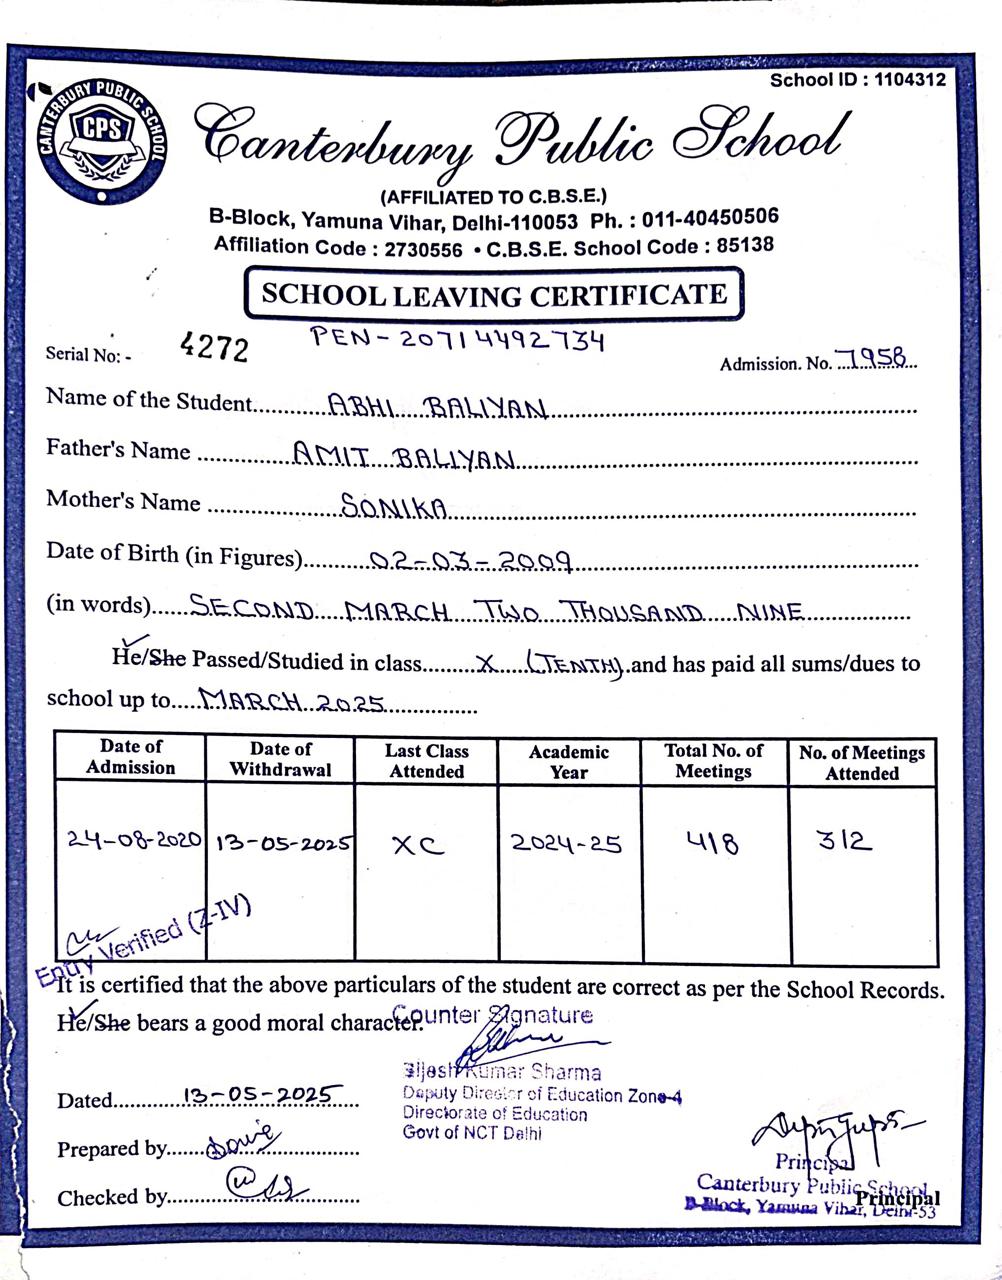 School ID : 1104312
CANTERBURY PUBLIC SCHOOL
CPS
Canterbury Public School
(AFFILIATED TO C.B.S.E.)
B-Block, Yamuna Vihar, Delhi-110053 Ph. : 011-40450506
Affiliation Code : 2730556 • C.B.S.E. School Code : 85138
SCHOOL LEAVING CERTIFICATE
PEN-20714492734
Serial No: - 4272
Admission. No. 7958
Name of the Student ABHI BALIYAN
Father's Name AMIT BALIYAN
Mother's Name SONIKA
Date of Birth (in Figures) 02-03-2009
(in words) SECOND MARCH TWO THOUSAND NINE
He/She Passed/Studied in class X (TENTH) and has paid all sums/dues to
school up to MARCH 2025
Date of Admission Date of Withdrawal Last Class Attended Academic Year Total No. of Meetings No. of Meetings Attended
24-08-2020 13-05-2025 XC 2024-25 418 312
Entry Verified (Z-IV)
It is certified that the above particulars of the student are correct as per the School Records.
He/She bears a good moral character.
Counter Signature
Kumar Sharma
Deputy Director of Education Zone-4
Directorate of Education
Govt of NCT Delhi
Dated 13-05-2025
Prepared by
Checked by
Principal
Canterbury Public School
Principal
B-Block, Yamuna Vihar, Delhi-53